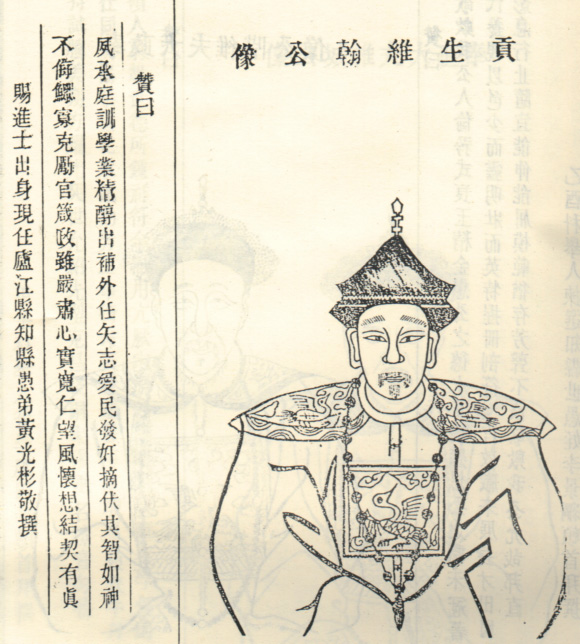 貢生維翰公像
贊曰
夙承庭訓學業精醇出補外任矢志愛民發奸摘伏其智如神
不侮鰥寡克勵官箴政雖嚴肅心實寬仁望風懷想結契有眞
賜進士出身現任廬江縣知縣愚弟黃光彬敬撰